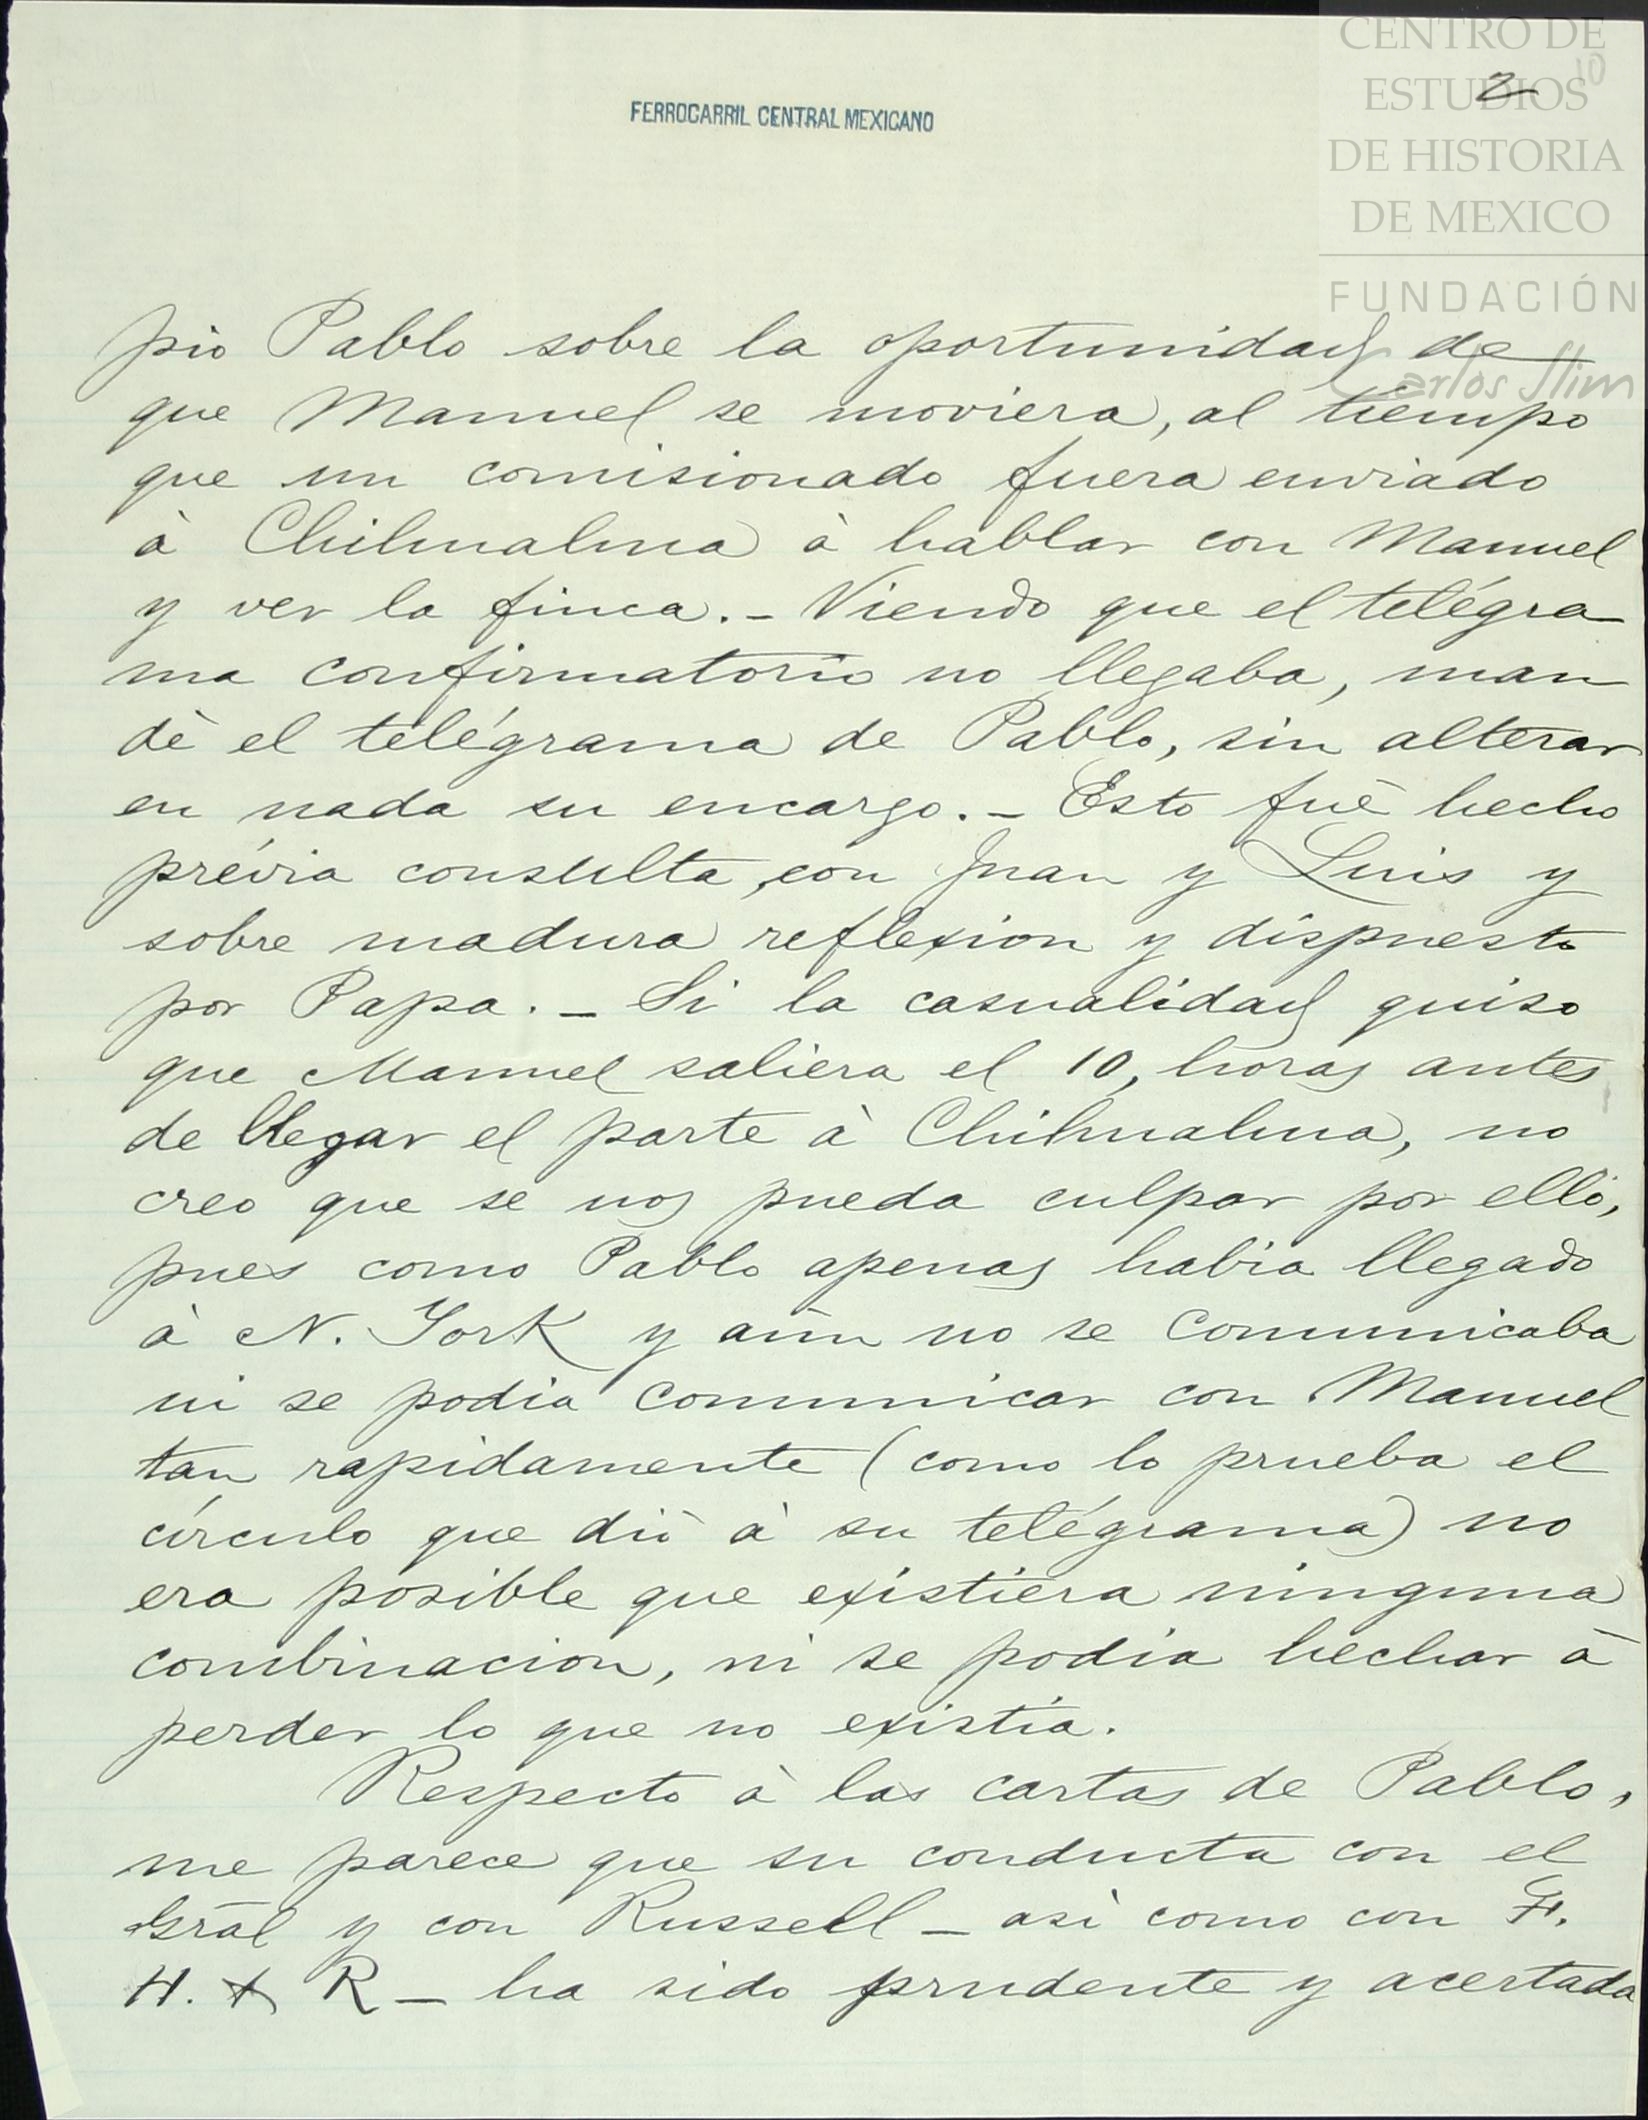 CENTRO DE
ESTUDIOS
DE HISTORIA
DE MEXICO
FUNDACIÓN
Carlos Slim
10
2
FERROCARRIL CENTRAL MEXICANO
pio Pablo sobre la oportunidad de
que Manuel se moviera, al tiempo
que un comisionado fuera enviado
à Chihuahua à hablar con Manuel
y ver la finca. - Viendo que el telégra-
ma confirmatorio no llegaba, man-
dè el telégrama de Pablo, sin alterar
en nada su encargo. - Esto fuè hecho
prévia consulta, con Juan y Luis y
sobre madura reflexion y dispuesto
por Papa. - Si la casualidad quiso
que Manuel saliera el 10, horas antes
de llegar el parte à Chihuahua, no
creo que se nos pueda culpar por ello,
pues como Pablo apenas habia llegado
à N. York y aún no se comunicaba
ni se podia comunicar con Manuel
tan rapidamente (como lo prueba el
círculo que diò à su telégrama) no
era posible que existiera ninguna
combinacion, ni se podia hechar à
perder lo que no existia.
Respecto à las cartas de Pablo,
me parece que su conducta con el
Gral y con Russell - asì como con F.
H. & R - ha sido prudente y acertada